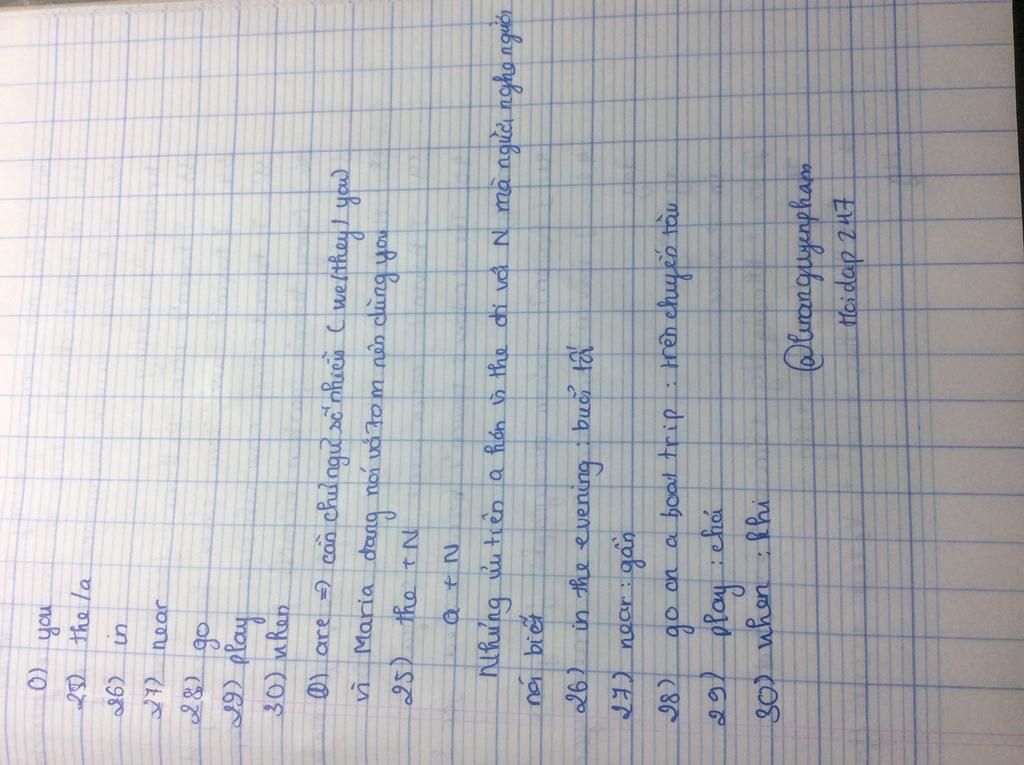 0) you
25) the/a
26) in
27) near
28) go
29) play
30) when
0) are => cần chủ ngữ số nhiều (we/they/ you)
vì Maria đang nói với Tom nên dùng you
25) the + N
a + N
Nhưng ưu tiên a hơn vì the đi với N mà người nghe người
nói biết
26) in the evening : buổi tối
27) near : gần
28) go on a boat trip : trên chuyến tàu
29) play : chơi
30) when : khi
Hoidap 247